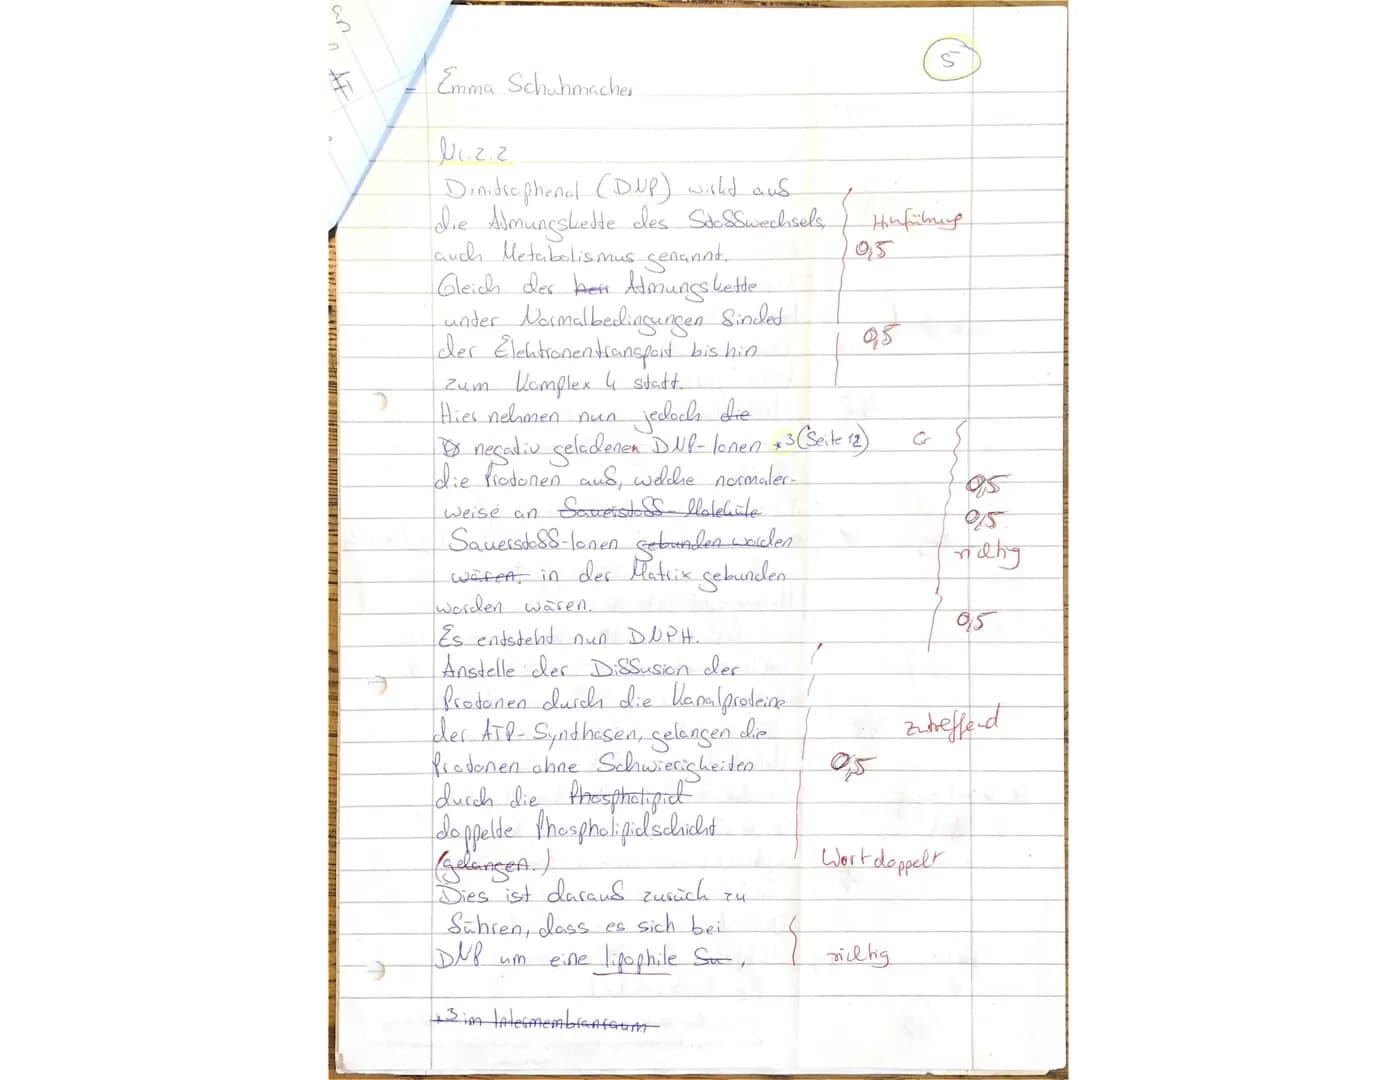 5
Emma Schuhmacher
Nr. 2.2
Dinitrophenol (DNP) wirkt auf
die Atmungskette des Stoffwechsels, Hinführung
auch Metabolismus genannt. 0,5
Gleich der Atmungskette
unter Normalbedingungen findet
der Elektronentransport bis hin 0,5
zum Komplex 4 statt.
Hier nehmen nun jedoch die
negativ geladenen DNP-Ionen *3 (Seite 12) Gr
die Protonen auf, welche normaler- 0,5
weise an Sauerstoff-Moleküle 0,5
Sauerstoff-Ionen gebunden worden richtig
wären. in der Matrix gebunden
worden wären. 0,5
Es entsteht nun DNPH.
Anstelle der Diffusion der
Protonen durch die Kanalproteine
der ATP-Synthasen, gelangen die zutreffend
Protonen ohne Schwierigkeiten 0,5
durch die Phospholipid
doppelte Phospholipidschicht
(gelangen.) Wort doppelt
Dies ist darauf zurück zu
führen, dass es sich bei
DNP um eine lipophile Su, richtig
*3 im Intermembranraum